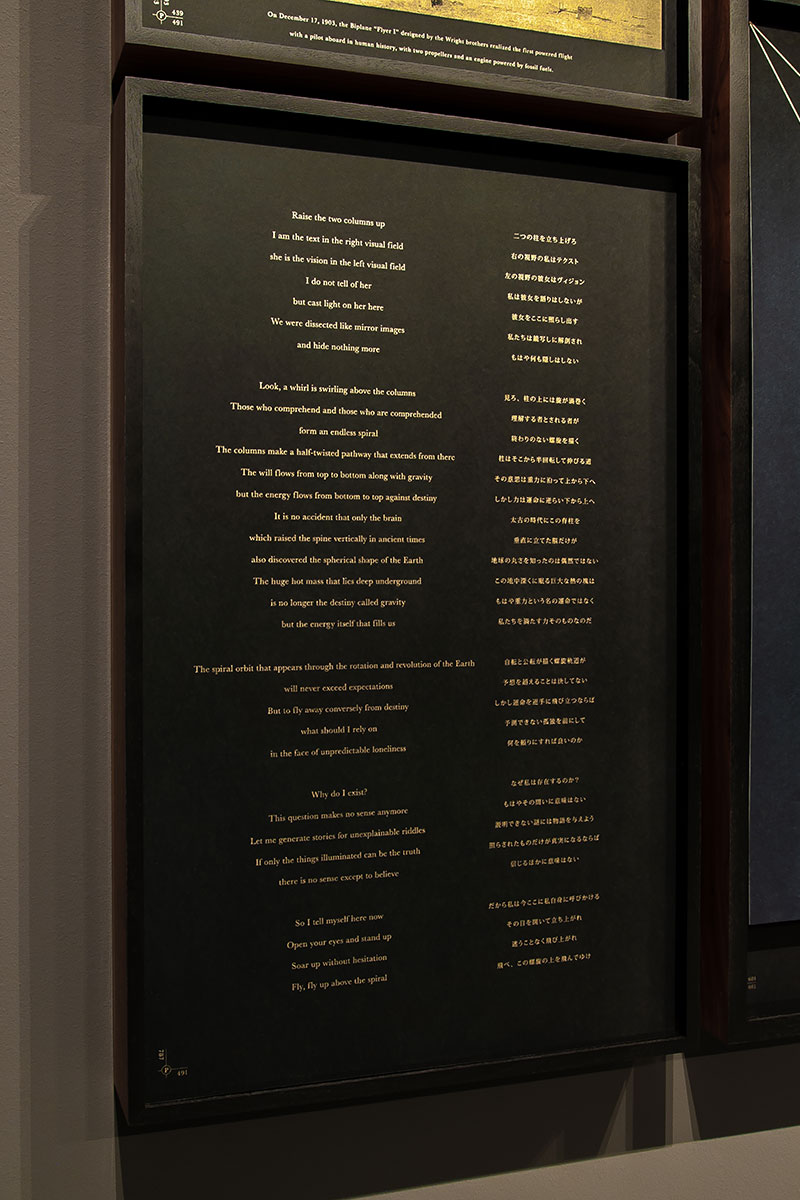 439
491
On December 17, 1903, the Biplane "Flyer I" designed by the Wright brothers realized the first powered flight
with a pilot aboard in human history, with two propellers and an engine powered by fossil fuels.
Raise the two columns up
I am the text in the right visual field
she is the vision in the left visual field
I do not tell of her
but cast light on her here
We were dissected like mirror images
and hide nothing more
Look, a whirl is swirling above the columns
Those who comprehend and those who are comprehended
form an endless spiral
The columns make a half-twisted pathway that extends from there
The will flows from top to bottom along with gravity
but the energy flows from bottom to top against destiny
It is no accident that only the brain
which raised the spine vertically in ancient times
also discovered the spherical shape of the Earth
The huge hot mass that lies deep underground
is no longer the destiny called gravity
but the energy itself that fills us
The spiral orbit that appears through the rotation and revolution of the Earth
will never exceed expectations
But to fly away conversely from destiny
what should I rely on
in the face of unpredictable loneliness
Why do I exist?
This question makes no sense anymore
Let me generate stories for unexplainable riddles
If only the things illuminated can be the truth
there is no sense except to believe
So I tell myself here now
Open your eyes and stand up
Soar up without hesitation
Fly, fly up above the spiral
二つの柱を立ち上げろ
右の視野の私はテクスト
左の視野の彼女はヴィジョン
私は彼女を語りはしないが
彼女をここに照らし出す
私たちは鏡写しに解剖され
もはや何も隠しはしない
見ろ、柱の上には旋が渦巻く
理解する者とされる者が
終わりのない螺旋を描く
柱はそこから半回転して伸びる道
その意思は重力に沿って上から下へ
しかし力は運命に逆らい下から上へ
太古の時代にこの脊柱を
垂直に立てた脳だけが
地球の丸さを知ったのは偶然ではない
この地中深くに眠る巨大な熱の塊は
もはや重力という名の運命ではなく
私たちを満たす力そのものなのだ
自転と公転が描く螺旋軌道が
予想を超えることは決してない
しかし運命を逆手に飛び立つならば
予測できない孤独を前にして
何を頼りにすれば良いのか
なぜ私は存在するのか?
もはやその問いに意味はない
説明できない謎には物語を与えよう
照らされたものだけが真実になるならば
信じるほかに意味はない
だから私は今ここに私自身に呼びかける
その目を開いて立ち上がれ
迷うことなく飛び上がれ
飛べ、この螺旋の上を飛んでゆけ
787
P
491